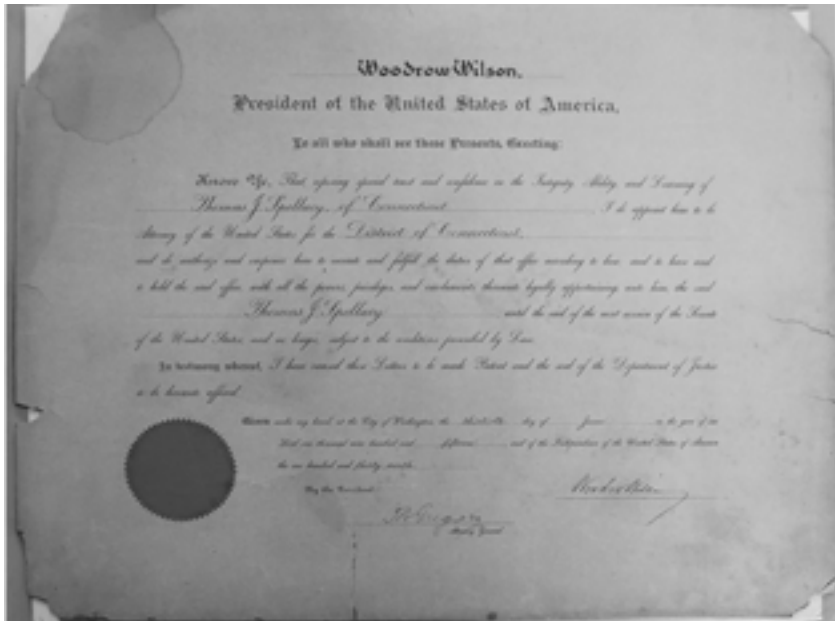 Woodrow Wilson,
President of the United States of America,
To all who shall see these Presents, Greeting:
Know Ye, That reposing special trust and confidence in the Integrity, Ability, and Learning of
Thomas J. Spellacy, of Connecticut, I do appoint him to be
Attorney of the United States for the District of Connecticut,
and do authorize and empower him to execute and fulfill the duties of that office according to law, and to have and
to hold the said office, with all the powers, privileges, and emoluments thereunto legally appertaining unto him, the said
Thomas J. Spellacy until the end of the next session of the Senate
of the United States and no longer, subject to the conditions prescribed by Law.
In testimony whereof, I have caused these Letters to be made Patent and the seal of the Department of Justice
to be hereunto affixed.
Given under my hand, at the City of Washington, the day of June in the year of our
Lord one thousand nine hundred and fifteen, and of the Independence of the United States of America
the one hundred and thirty-ninth.
By the President:
Woodrow Wilson
Gregory
Attorney General